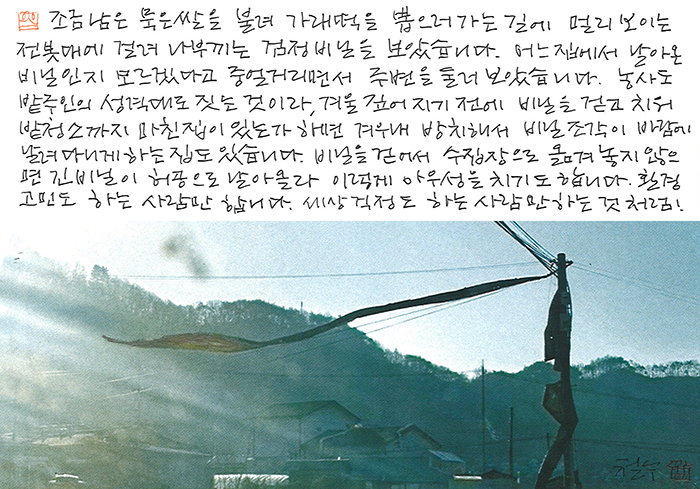 조금 남은 묵은쌀을 불려 가래떡을 뽑으러 가는 길에 멀리 보이는
전봇대에 걸려 나부끼는 검정비닐을 보았습니다. 어느 집에서 날아온
비닐인지 모르겠다고 중얼거리면서 주변을 둘러보았습니다. 농사도
밭주인의 성격대로 짓는 것이라, 겨울 깊어지기 전에 비닐을 걷고 치워
밭청소까지 마친집이 있는가 하면 겨우내 방치해서 비닐조각이 바람에
날려다니게하는 집도 있습니다. 비닐을 걷어서 수집장으로 옮겨놓지 않으
면 긴비닐이 허공으로 날아올라 이렇게 아우성을 치기도 합니다. 환경
고민도 하는 사람만 합니다. 세상걱정도 하는 사람만하는 것처럼!
철수